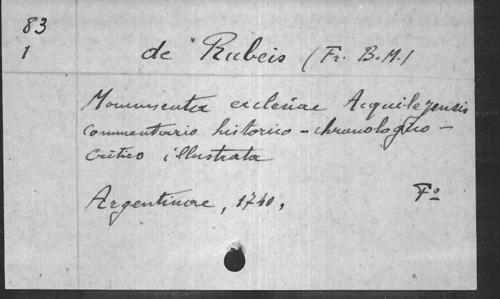 83
1
de Rubeis (Fr. B. M.)
Monumenta eclesiae Aequilejensis
commentario historico - chronologico -
critico illustrata
Argentinae, 1740, Fº